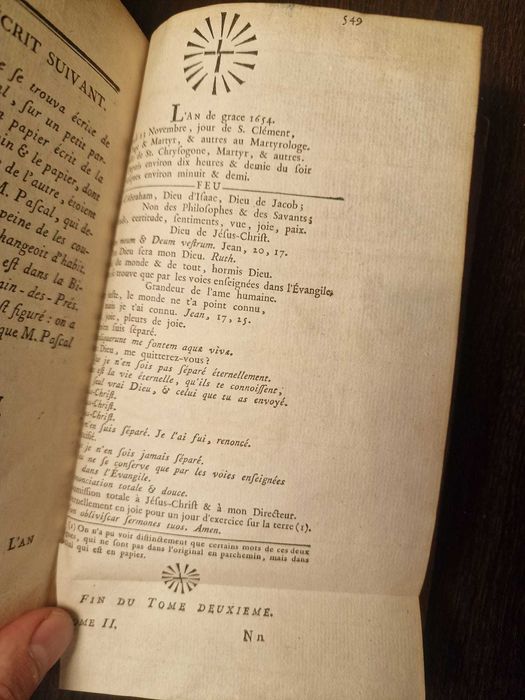 CRIT SUIVANT.
e se trouva écrite de
l, sur un petit par-
papier écrit de la
in & le papier, dont
de l'autre, étoient
M. Pascal, qui de-
peine de les cou-
changeoit d'habit.
est dans la Bi-
in-des-Prés.
st figuré : on a
que M. Pascal
L'AN
549
L'AN de grace 1654.
Novembre, jour de S. Clément,
& Martyr, & autres au Martyrologe.
de St. Chrysogone, Martyr, & autres.
environ dix heures & demie du soir
environ minuit & demi.
FEU
Abraham, Dieu d'Isaac, Dieu de Jacob;
Non des Philosophes & des Savants;
certitude, sentiments, vue, joie, paix.
Dieu de Jésus-Christ.
meum & Deum vestrum. Jean, 20, 17.
Dieu sera mon Dieu. Ruth.
du monde & de tout, hormis Dieu.
trouve que par les voies enseignées dans l'Évangile.
Grandeur de l'ame humaine.
juste, le monde ne t'a point connu,
mais je t'ai connu. Jean, 17, 25.
joie, pleurs de joie.
m'en suis séparé.
me fontem aquæ vivæ.
Dieu, me quitterez-vous?
je n'en sois pas séparé éternellement.
est la vie éternelle, qu'ils te connoissent,
seul vrai Dieu, & celui que tu as envoyé.
-Christ.
-Christ.
m'en suis séparé. Je l'ai fui, renoncé.
je n'en sois jamais séparé.
ne se conserve que par les voies enseignées
dans l'Évangile.
nonciation totale & douce.
mission totale à Jésus-Christ & à mon Directeur.
ternellement en joie pour un jour d'exercice sur la terre (1).
obliviscar sermones tuos. Amen.
(1) On n'a pu voir distinctement que certains mots de ces deux
lignes, qui ne sont pas dans l'original en parchemin, mais dans
qui est en papier.
FIN DU TOME DEUXIEME.
TOME II. N n